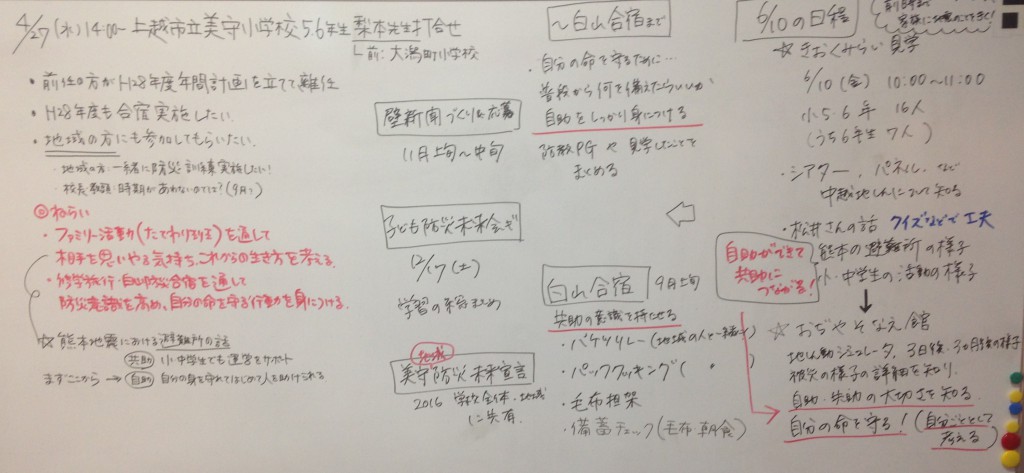 4/27(水)14:00~ 上越市立美守小学校 5.6年生 梨本先生打合せ
└前:大潟町小学校
・前任の方がH28年度年間計画を立てて離任
・H28年度も合宿実施したい.
・地域の方にも参加してもらいたい.
・地域の方と一緒に防災訓練実施したい!
・校長・教頭:時期があわないのでは?(9月〜)
◎ねらい
・ファミリー活動(たてわり)を通して
相手を思いやる気持ち、これからの生き方を考える.
・修学旅行・自山防災合宿を通して
防災意識を高め、自分の命を守る行動を身につける.
☆熊本地震における避難所の話
共助 小・中学生でも運営をサポート
まずここから → 自助 自分の身を守れてはじめて人を助けられる
壁新聞づくり&応募
11月上旬~中旬
子ども防災未来会議
12/17(土)
学習の まとめ
地域
美守防災未来宣言
2016 学校全体・地域
に共有.
~白山合宿まで
・自分の命を守るために…
普段から何を備えたらいいか
自助をしっかり身につける
防教PGや見学したことで
まとめる
白山合宿 9月上旬
共助の意識を持たせる
・バケツリレー(地域の人と一緒に)
・パッククッキング( ・ )
・毛布担架
・備蓄チェック(毛布 朝食)
6/10の日程
前日までに
☆きおくみらい見学
6/10(金) 10:00~11:00
小5・6年 16人
(うち6年生 7人)
・シアター、パネル、など
中越地しんについて知る
・松井さんの話 クイズなどで工夫
熊本の避難所の様子
小・中学生の活動の様子
自助ができて
共助に
つながる!
☆おぢやそなえ館
地しん動シミュレータ、3日後・3ヵ月後の様子
被災の様子の詳細を知り、
自助・共助の大切さを知る.
自分の命を守る!(自分ごととして
考える)